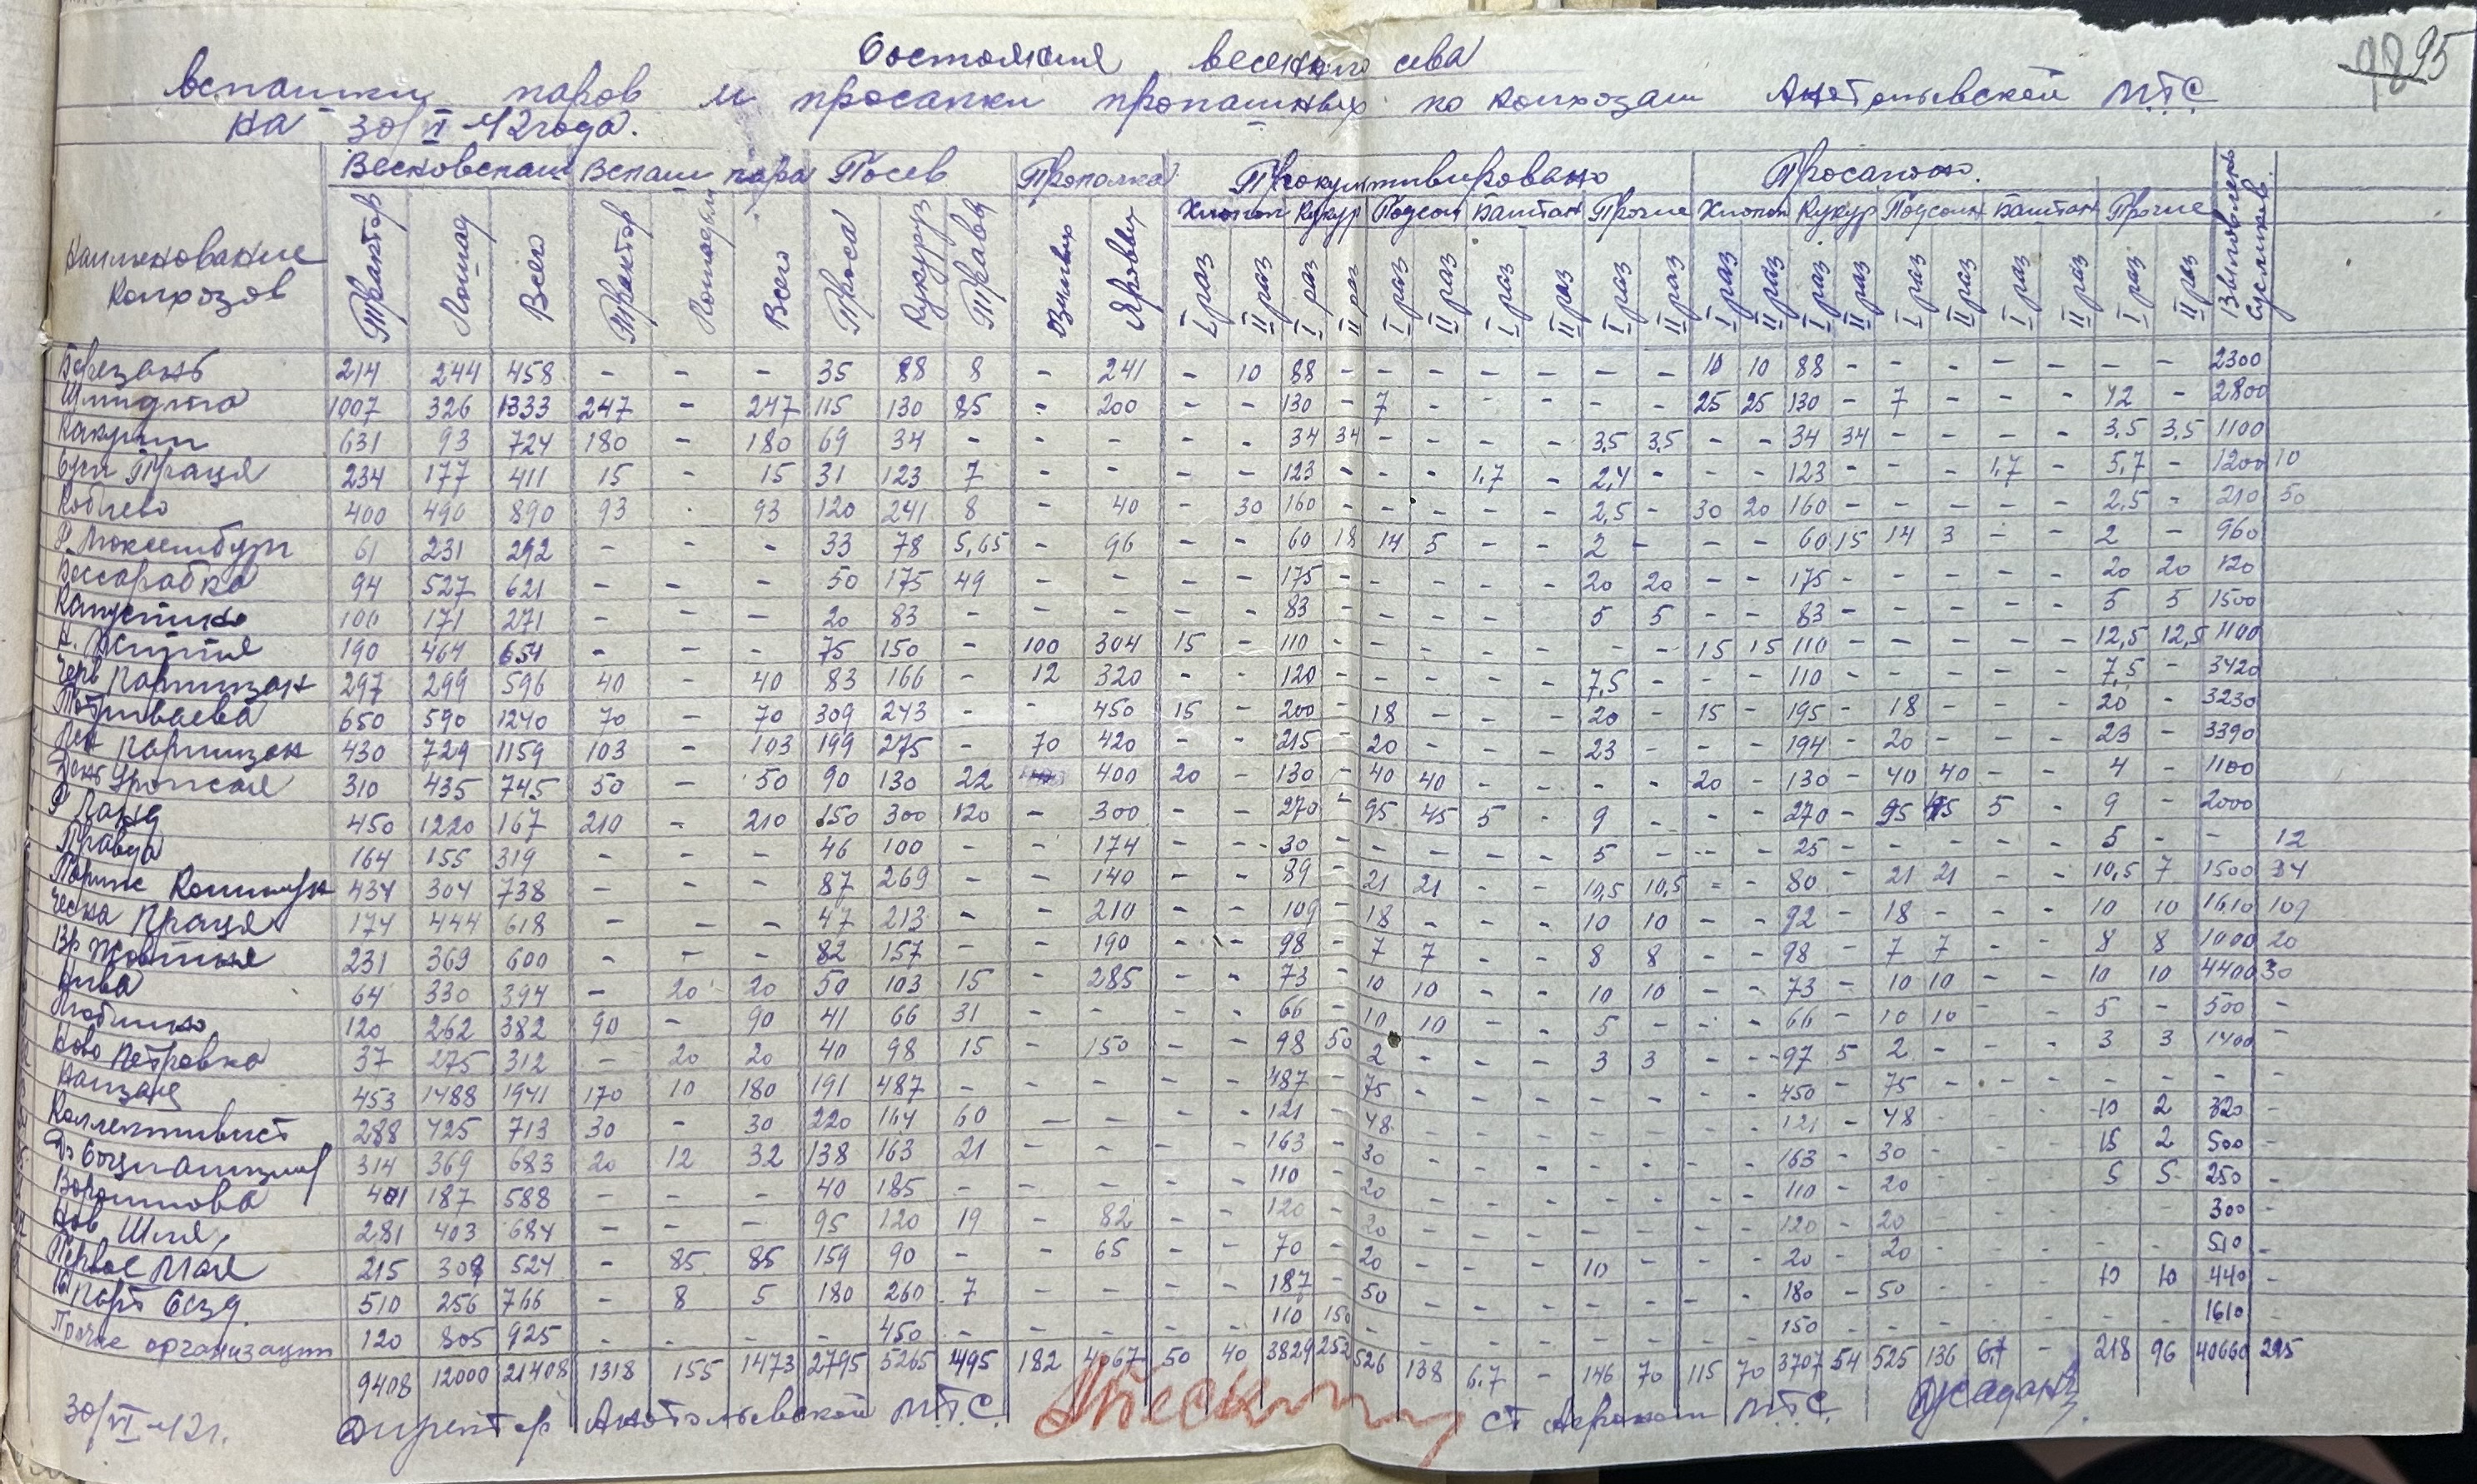 98 95
Состояние весеннего сева
вспашки паров и просапки пропашных по колхозам Анатольевской М.Т.С.
на 30/VI 42 года.
Наименование колхозов | Весновспаш | Вспаш пара | Посев | Прополка | Прокультивировано | Просапано. | Выловлено Сусликов.
Хлопок Кукур Подсол Баштан Прочие Хлопок Кукур Подсолн Баштан Прочие
Трактор Лошад Всего Трактор Лошадьм Всего Проса Кукуруз Травы Озимых Яровых I раз II раз I раз II раз I раз II раз I раз II раз I раз II раз I раз II раз I раз II раз I раз II раз I раз II раз I раз II раз
Березань 214 244 458 - - - 35 88 8 - 241 - 10 88 - - - - - - - 10 10 88 - - - - - - - 2300
Шмидта 1007 326 1333 247 - 247 115 130 85 - 200 - - 130 - 7 - - - - - 25 25 130 - 7 - - - 12 - 2800
631 93 724 180 - 180 69 34 - - - - - 34 34 - - - - 3,5 3,5 - - 34 34 - - - - 3,5 3,5 1100
Праця 234 177 411 15 - 15 31 123 7 - - - - 123 - - - 1,7 - 2,4 - - - 123 - - - 1,7 - 5,7 - 1200 10
Коблево 400 490 890 93 . 93 120 241 8 - 40 - 30 160 - - - - - 2,5 - 30 20 160 - - - - - 2,5 - 210 50
Р. Люксембург 61 231 292 - - - 33 78 5,65 - 96 - - 60 18 14 5 - - 2 - - - 60 15 14 3 - - 2 - 960
Бессарабка 94 527 621 - - - 50 175 49 - - - - 175 - - - - - 20 20 - - 175 - - - - - 20 20 120
Капустино 100 171 271 - - - 20 83 - - - - - 83 - - - - - 5 5 - - 83 - - - - - 5 5 1500
Н. Життя 190 464 654 - - - 75 150 - 100 304 15 - 110 - - - - - - - 15 15 110 - - - - - 12,5 12,5 1100
Черв Партизан 297 299 596 40 - 40 83 166 - 12 320 - - 120 - - - - - 7,5 - - - 110 - - - - - 7,5 - 3420
650 590 1240 70 - 70 309 243 - - 450 15 - 200 - 18 - - - 20 - 15 - 195 - 18 - - - 20 - 3230
Лен Партизан 430 729 1159 103 - 103 199 275 - 70 420 - - 215 - 20 - - - 23 - - - 194 - 20 - - - 23 - 3390
День Урожая 310 435 745 50 - 50 90 130 22 400 20 - 130 - 40 40 - - - - 20 - 130 - 40 40 - - 4 - 1100
Р Ланд 450 1220 167 210 - 210 150 300 120 - 300 - - 270 - 95 45 5 - 9 - - - 270 - 95 45 5 - 9 - 2000
Правда 164 155 319 - - - 46 100 - - 174 - - 30 - - - - - 5 - - - 25 - - - - - 5 - - 12
Париж Коммун 434 304 738 - - - 87 269 - - 140 - - 89 - 21 21 - - 10,5 10,5 - - 80 - 21 21 - - 10,5 7 1500 34
Ческа Праця 174 444 618 - - - 47 213 - - 210 - - 109 - 18 - - - 10 10 - - 92 - 18 - - - 10 10 1610 109
Вр Жовтня 231 369 600 - - - 82 157 - - 190 - - 98 - 7 7 - - 8 8 - - 98 - 7 7 - - 8 8 1000 20
Нива 64 330 394 - 20 20 50 103 15 - 285 - - 73 - 10 10 - - 10 10 - - 73 - 10 10 - - 10 10 4400 30
120 262 382 90 - 90 41 66 31 - - - - 66 - 10 10 - - 5 - - - 66 - 10 10 - - 5 - 500 -
Ново Петровка 37 275 312 - 20 20 40 98 15 - 150 - - 98 50 2 - - - 3 3 - - 97 5 2 - - - 3 3 1400 -
453 1488 1941 170 10 180 191 487 - - - - - 487 - 75 - - - - - - - 450 - 75 - - - - - - -
Коллективист 288 425 713 30 - 30 220 164 60 - - - - 121 - 48 - - - - - - - 121 - 48 - - - 10 2 320 -
Др Социализма 314 369 683 20 12 32 138 163 21 - - - - 163 - 30 - - - - - - - 163 - 30 - - - 15 2 500 -
Ворошилова 401 187 588 - - - 40 185 - - - - - 110 - 20 - - - - - - - 110 - 20 - - - 5 5 250 -
Нов Шлях 281 403 684 - - - 95 120 19 - 82 - - 120 - 20 - - - - - - - 120 - 20 - - - - - 300 -
Первое Мая 215 309 524 - 85 85 159 90 - - 65 - - 70 - 20 - - - 10 - - - 20 - 20 - - - - - 510 -
Парт Сезд. 510 256 766 - 8 5 180 260 7 - - - - 187 - 50 - - - - - - - 180 - 50 - - - 10 10 440 -
Прочие организации 120 805 925 - - - - 450 - - - - - 110 150 - - - - - - - - 150 - - - - - - - 1610 -
9408 12000 21408 1318 155 1473 2795 5265 495 182 4067 50 40 3829 252 526 138 6.7 - 146 70 115 70 3707 54 525 136 6.7 - 218 96 40660 295
30/VI-42г. Директор Анатольевской М.Т.С. Ст Агроном М.Т.С.